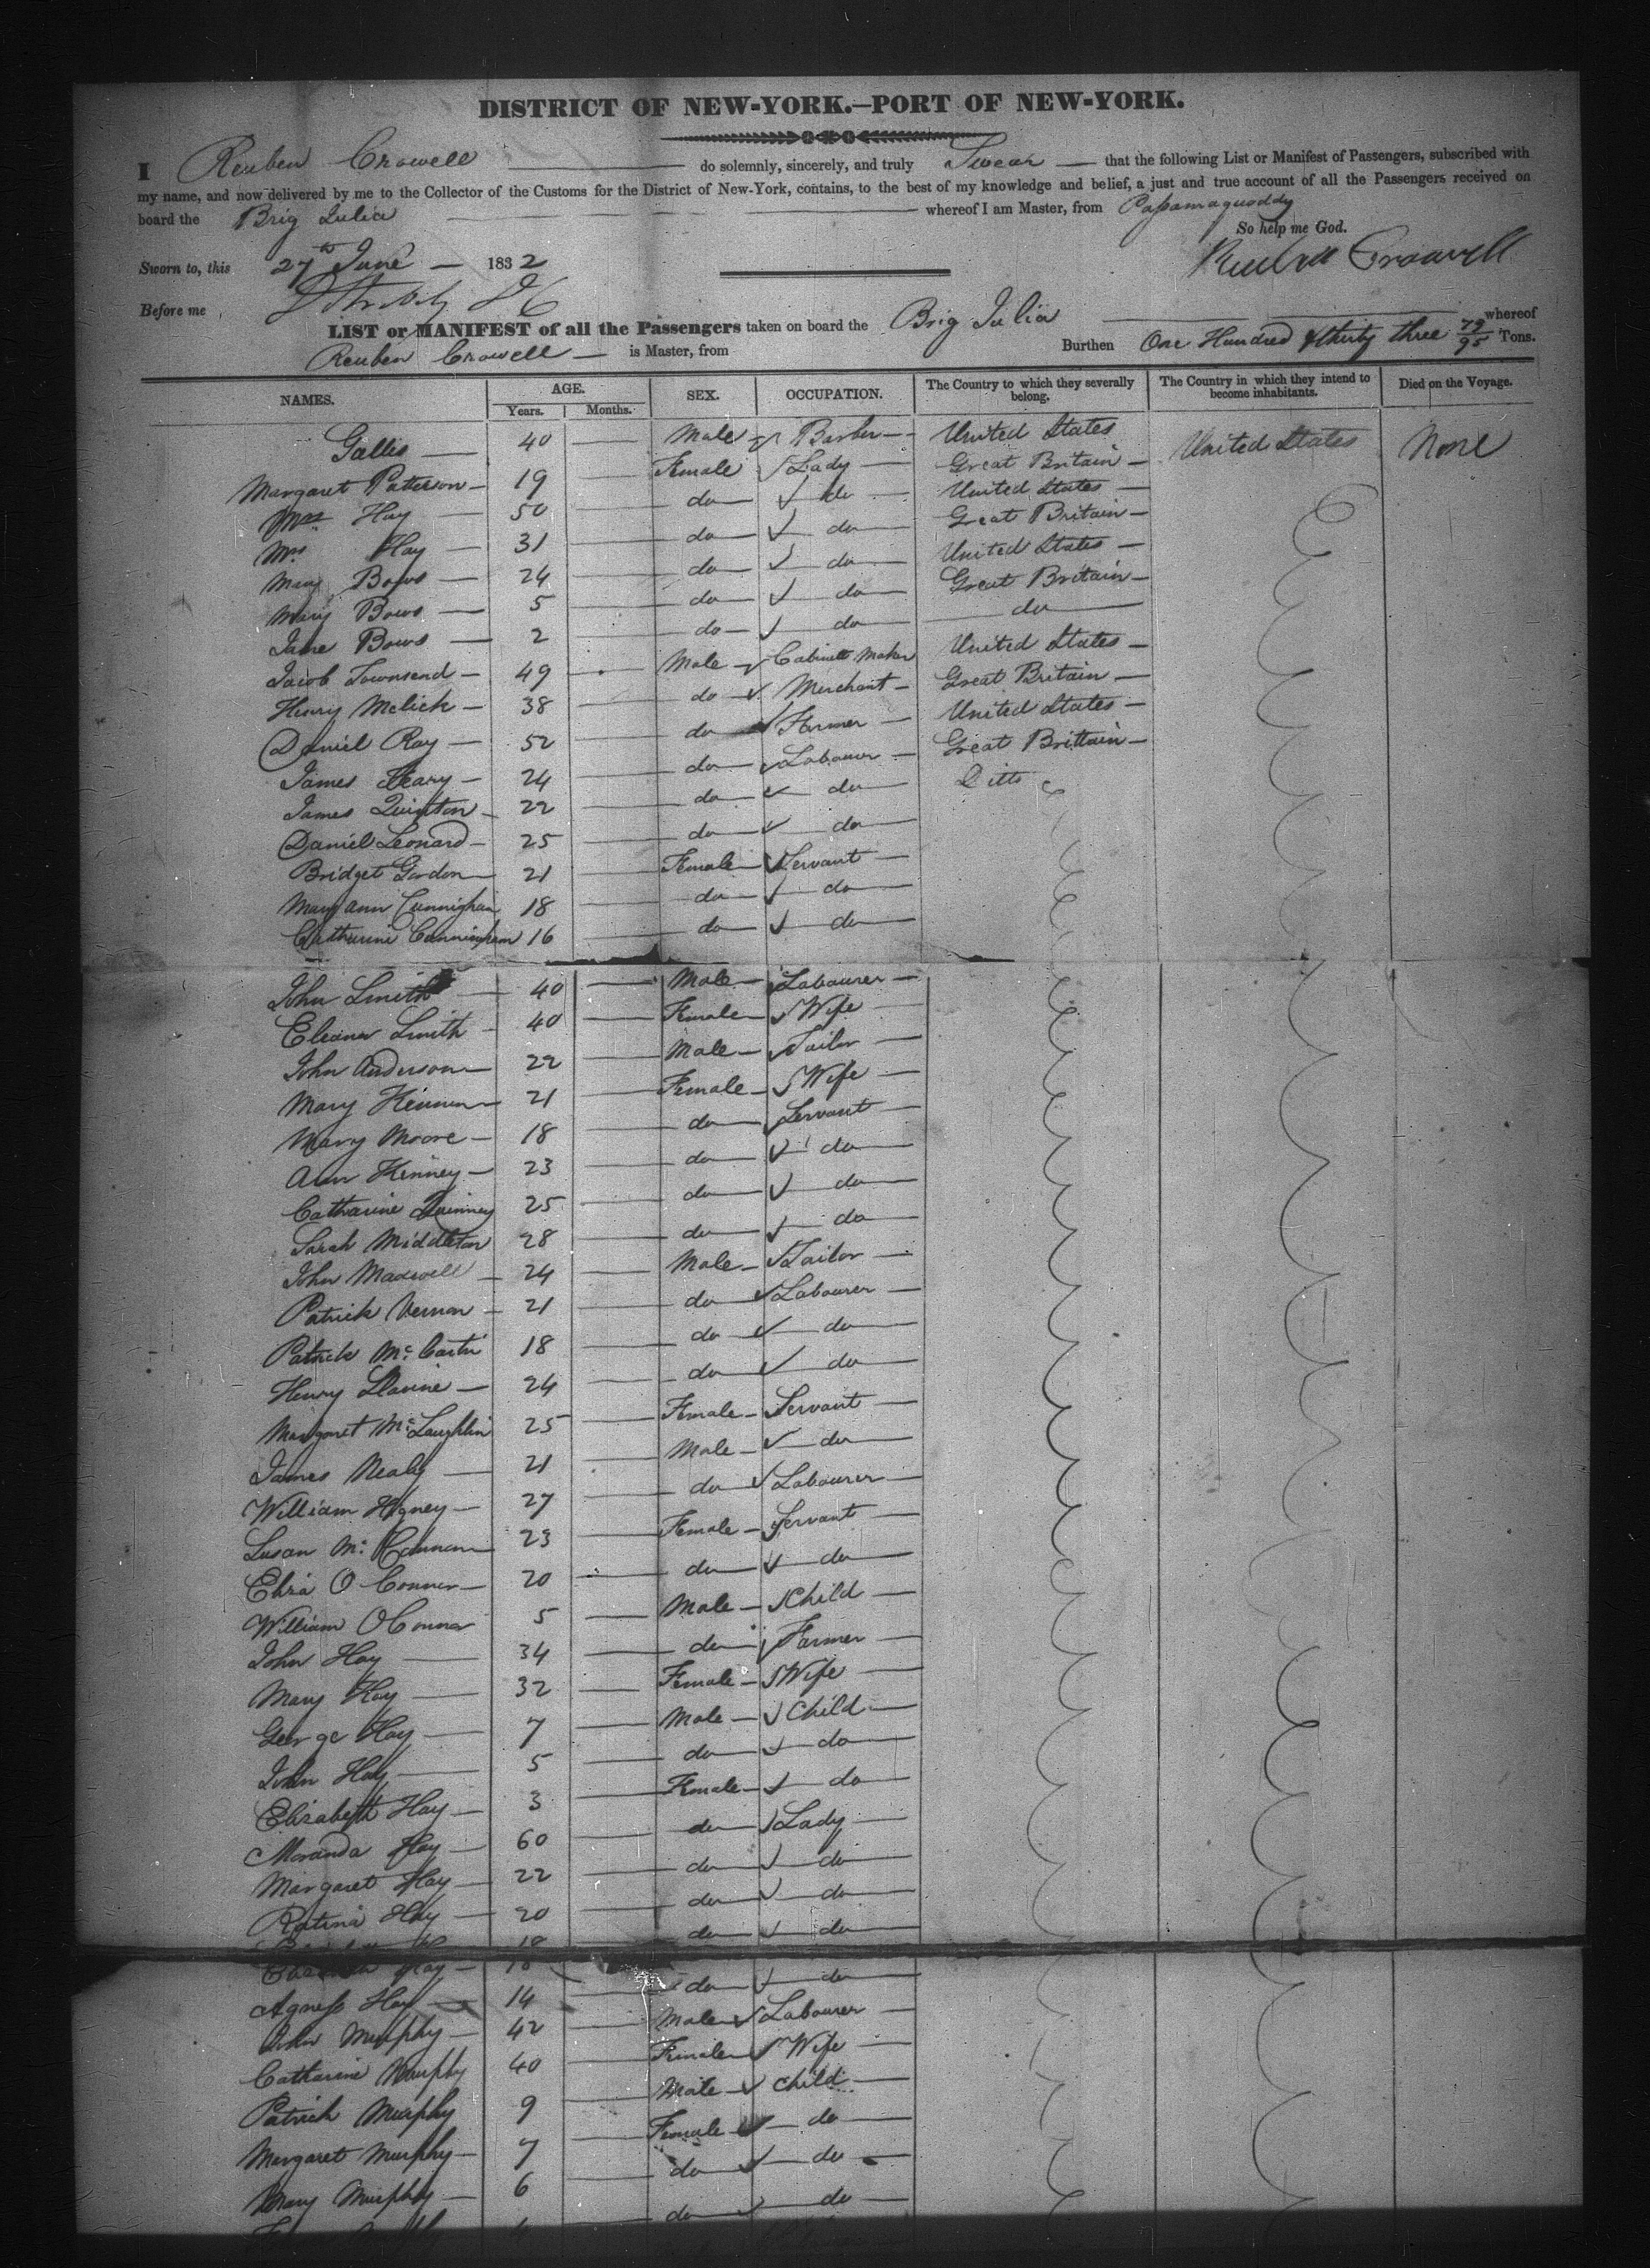 DISTRICT OF NEW-YORK.—PORT OF NEW-YORK.
I Reuben Crowell do solemnly, sincerely, and truly Swear that the following List or Manifest of Passengers, subscribed with
my name, and now delivered by me to the Collector of the Customs for the District of New-York, contains, to the best of my knowledge and belief, a just and true account of all the Passengers received on
board the Brig Julia whereof I am Master, from Passamaquoddy
So help me God.
Sworn to, this 27th June 1832
Reuben Crowell
Before me
LIST or MANIFEST of all the Passengers taken on board the Brig Julia whereof
Reuben Crowell is Master, from Burthen One Hundred & thirty three 72/95 Tons.
NAMES. AGE. SEX. OCCUPATION. The Country to which they severally belong. The Country in which they intend to become inhabitants. Died on the Voyage.
Years. Months.
Gallis 40 Male Barber United States United States None
Margaret Patterson 19 Female Lady Great Britain
Mrs Hay 50 do do United States
Mrs Hay 31 do do Great Britain
Mary Bows 24 do do United States
Mary Bows 5 do do Great Britain
Jane Bows 2 do do do
Jacob Townsend 49 Male Cabinett Maker United States
Henry Melick 38 do Merchant Great Britain
Daniel Ray 52 do Farmer United States
James Heary 24 do Labourer Great Brittain
James Quinton 22 do do Ditto
Daniel Leonard 25 do do
Bridget Gordon 21 Female Servant
Mary Ann Cunnigham 18 do do
Catharine Cunningham 16 do do
John Smith 40 Male Labourer
Eleanor Smith 40 Female Wife
John Anderson 22 Male Tailor
Mary Hennen 21 Female Wife
Mary Moore 18 do Servant
Ann Kenney 23 do do
Catharine Quinney 25 do do
Sarah Middleton 28 do do
John Maxwell 24 Male Tailor
Patrick Vernon 21 do Labourer
Patrick McCartin 18 do do
Henry Slavine 24 do do
Margaret McLaughlin 25 Female Servant
James Nealy 21 Male do
William Hagney 27 do Labourer
Susan Mc Cannon 23 Female Servant
Eliza O Conner 20 do do
William O Connor 5 Male Child
John Hay 34 do Farmer
Mary Hay 32 Female Wife
George Hay 7 Male Child
John Hay 5 do do
Elizabeth Hay 3 Female do
Moranda Hay 60 do Lady
Margaret Hay 22 do do
Ratina Hay 20 do do
Hay 18 do do
Agness Hay 14 do do
John Murphy 42 Male Labourer
Catharine Murphy 40 Female Wife
Patrick Murphy 9 Male Child
Margaret Murphy 7 Female do
Mary Murphy 6 do do
do do